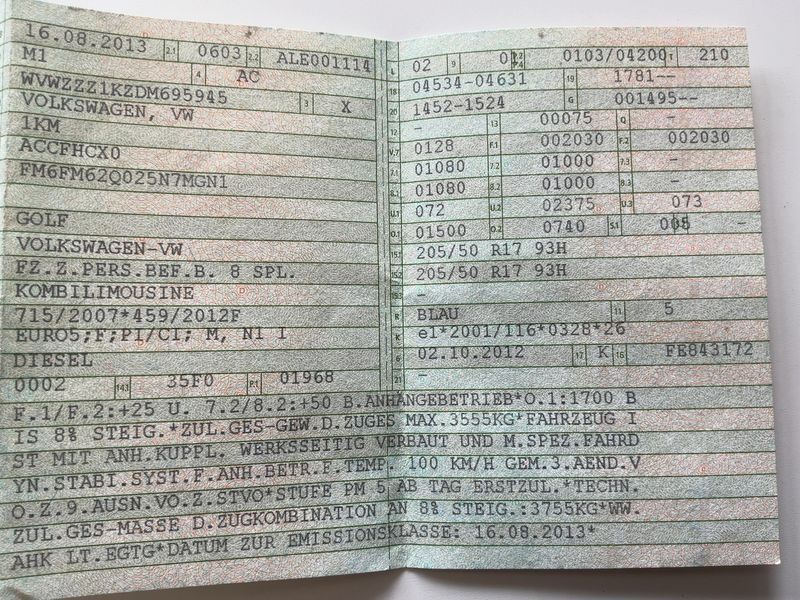 16.08.2013 2.1 0603 2.2 ALE001114
M1 4 AC
WVWZZZ1KZDM695945 3 X
VOLKSWAGEN, VW
1KM
ACCFHCX0
FM6FM62Q025N7MGN1
GOLF
VOLKSWAGEN-VW
FZ.Z.PERS.BEF.B. 8 SPL.
KOMBILIMOUSINE
715/2007*459/2012F
EURO5;F;PI/CI; M, N1 I
DIESEL
0002 14.1 35F0 P.1 01968
L 02 9 0103/04200 T 210
18 04534-04631 19 1781--
20 1452-1524 G 001495--
12 - 13 00075 Q -
V.7 0128 F.1 002030 F.2 002030
7.1 01080 7.2 01000 7.3 -
8.1 01080 8.2 01000 8.3 -
U.1 072 U.2 02375 U.3 073
O.1 01500 O.2 0740 S.1 -
15.1 205/50 R17 93H
15.2 205/50 R17 93H
15.3 -
R BLAU 11 5
K e1*2001/116*0328*26
6 02.10.2012 17 K 16 FE843172
21 -
F.1/F.2:+25 U. 7.2/8.2:+50 B.ANHÄNGEBETRIEB*O.1:1700 B
IS 8% STEIG.*ZUL.GES-GEW.D.ZUGES MAX.3555KG*FAHRZEUG I
ST MIT ANH.KUPPL. WERKSSEITIG VERBAUT UND M.SPEZ.FAHRD
YN.STABI.SYST.F.ANH.BETR.F.TEMP. 100 KM/H GEM.3.AEND.V
O.Z.9.AUSN.VO.Z.STVO*STUFE PM 5 AB TAG ERSTZUL.*TECHN.
ZUL.GES-MASSE D.ZUGKOMBINATION AN 8% STEIG.:3755KG*WW.
AHK LT.EGTG*DATUM ZUR EMISSIONSKLASSE: 16.08.2013*